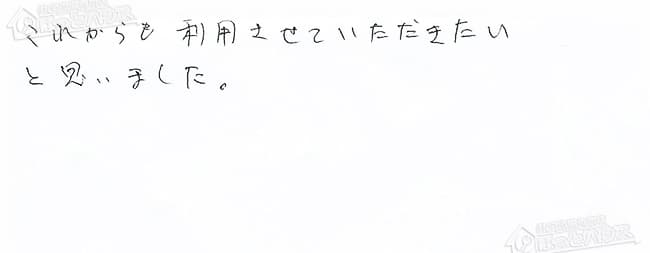 これからも利用させていただきたい
と思いました。